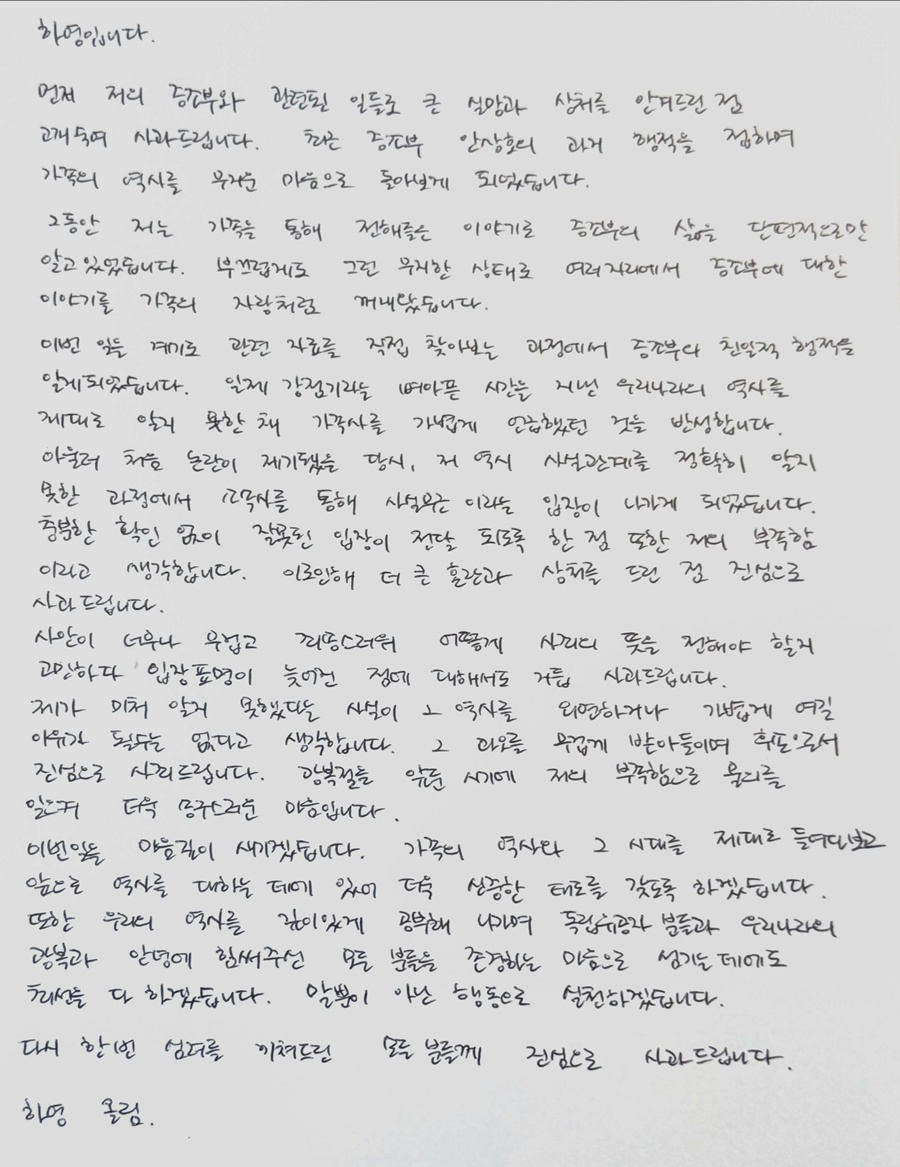 하영입니다.
먼저 저의 증조부와 관련된 일들로 큰 실망과 상처를 안겨드린 점
고개숙여 사과드립니다. 최근 증조부 안상호의 과거 행적을 접하며
가족의 역사를 무거운 마음으로 돌아보게 되었습니다.
그동안 저는 가족을 통해 전해들은 이야기로 증조부의 삶을 단편적으로만
알고 있었습니다. 부끄럽게도 그런 무지한 상태로 여러자리에서 증조부에 대한
이야기를 가족의 자랑처럼 꺼내왔습니다.
이번 일을 계기로 관련 자료를 직접 찾아보는 과정에서 증조부의 친일적 행적을
알게되었습니다. 일제 강점기라는 뼈아픈 시간을 지닌 우리나라의 역사를
제대로 알지 못한 채 가족사를 가볍게 언급했던 것을 반성합니다.
아울러 처음 논란이 제기됐을 당시, 저 역시 사실관계를 정확히 알지
못한 과정에서 소속사를 통해 사실무근 이라는 입장이 나가게 되었습니다.
충분한 확인 없이 잘못된 입장이 전달 되도록 한 점 또한 저의 부족함
이라고 생각합니다. 이로인해 더 큰 혼란과 상처를 드린 점 진심으로
사과드립니다.
사안이 너무나 무겁고 죄송스러워 어떻게 사죄의 뜻을 전해야 할지
고민하다 입장표명이 늦어진 점에 대해서도 거듭 사과드립니다.
제가 미처 알지 못했다는 사실이 그 역사를 외면하거나 가볍게 여길
이유가 될수는 없다고 생각합니다. 그 과오를 무겁게 받아들이며 후손으로서
진심으로 사죄드립니다. 광복절을 앞둔 시기에 저의 부족함으로 물의를
일으켜 더욱 송구스러운 마음입니다.
이번일을 마음깊이 새기겠습니다. 가족의 역사와 그 시대를 제대로 들여다보고
앞으로 역사를 대하는 데에 있어 더욱 신중한 태도를 갖도록 하겠습니다.
또한 우리의 역사를 깊이있게 공부해 나가며 독립유공자 분들과 우리나라의
광복과 안녕에 힘써주신 모든 분들을 존경하는 마음으로 섬기는 데에도
최선을 다 하겠습니다. 말뿐이 아닌 행동으로 실천하겠습니다.
다시 한번 심려를 끼쳐드린 모든 분들께 진심으로 사과드립니다.
하영 올림.